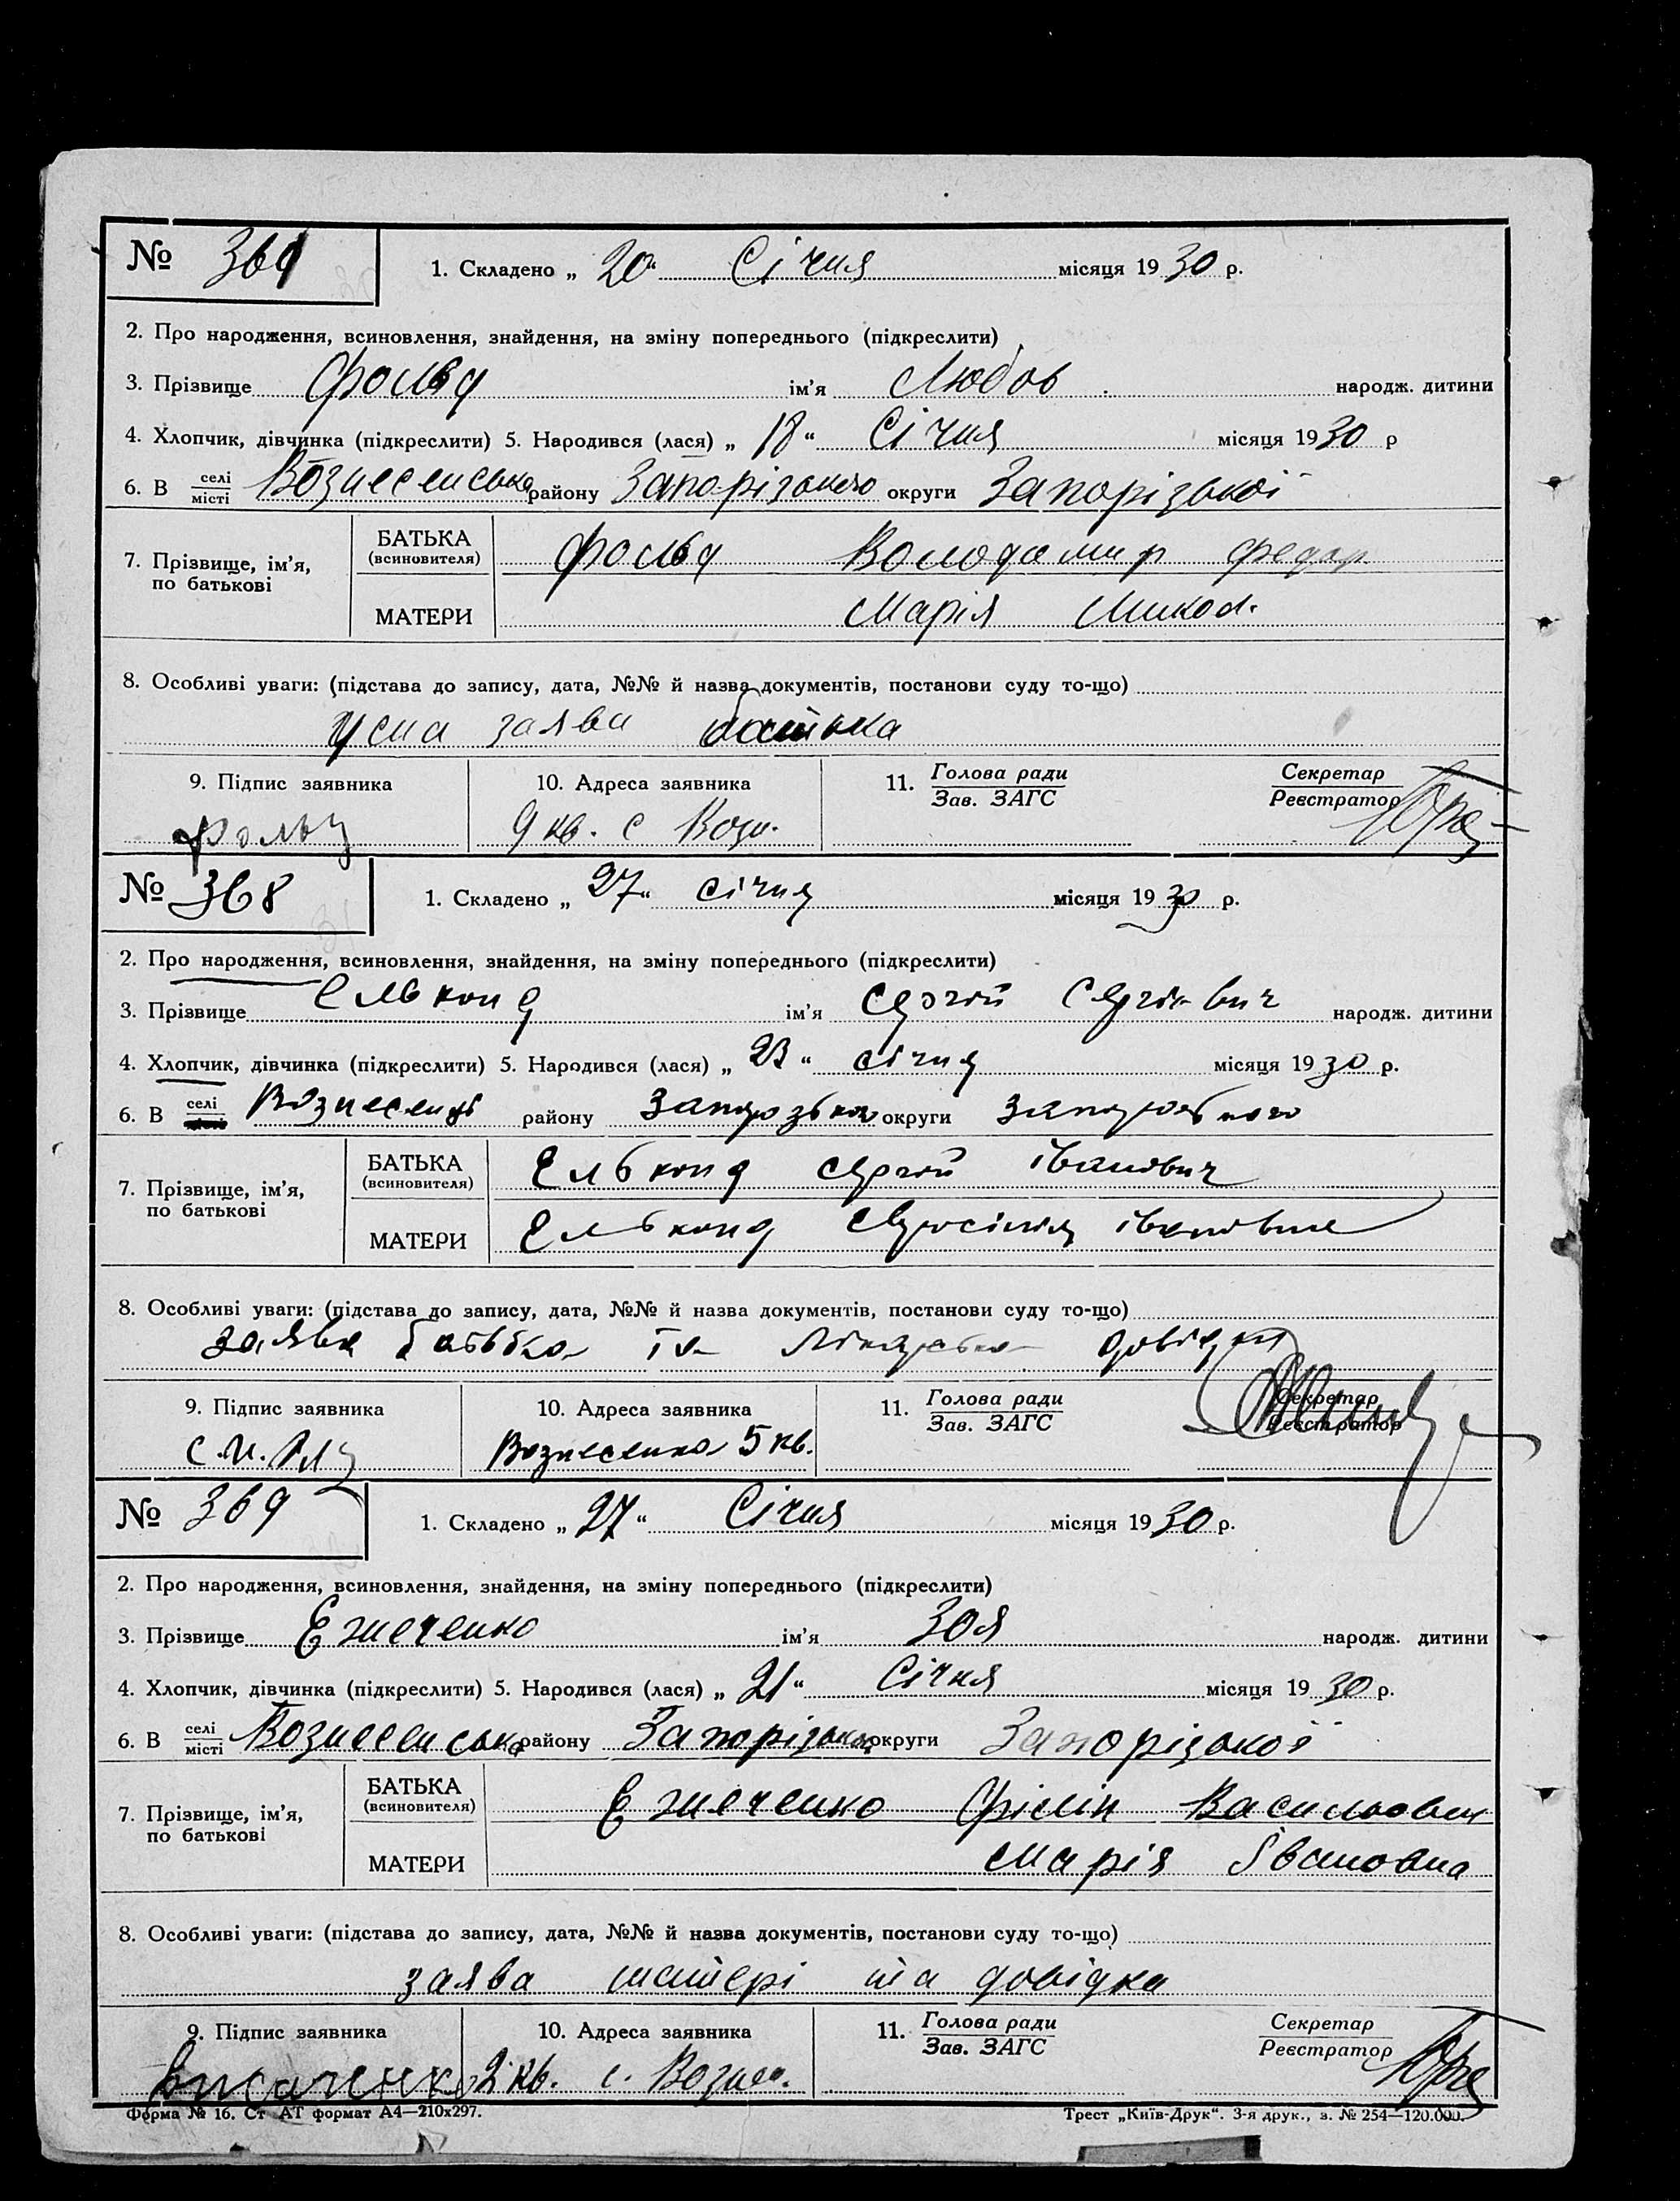 № 1. Складено „ 20 “ Січня місяця 1930 р.
2. Про народження, всиновлення, знайдення, на зміну попереднього (підкреслити)
3. Прізвище ім'я Любов народж. дитини
4. Хлопчик, дівчинка (підкреслити) 5. Народився (лася) „ 18 “ Січня місяця 1930 р
6. В селі/місті Вознесенська району Запорізького округи Запорізької
7. Прізвище, ім'я, по батькові
БАТЬКА (всиновителя) Володимир Федор
МАТЕРИ Марія Микол.
8. Особливі уваги: (підстава до запису, дата, №№ й назва документів, постанови суду то-що)
Усна заява батька
9. Підпис заявника 10. Адреса заявника 11. Голова ради/Зав. ЗАГС Секретар/Реєстратор
9 кв. с Возн.
№ 368 1. Складено „ 27 “ січня місяця 1930 р.
2. Про народження, всиновлення, знайдення, на зміну попереднього (підкреслити)
3. Прізвище ім'я Сергій народж. дитини
4. Хлопчик, дівчинка (підкреслити) 5. Народився (лася) „ 23 “ січня місяця 1930 р.
6. В селі району округи
7. Прізвище, ім'я, по батькові
БАТЬКА (всиновителя) Сергій Іванович
МАТЕРИ Івановна
8. Особливі уваги: (підстава до запису, дата, №№ й назва документів, постанови суду то-що)
заява батька та лікарська довідка
9. Підпис заявника 10. Адреса заявника 11. Голова ради/Зав. ЗАГС Секретар/Реєстратор
Вознесенка 5 кв.
№ 369 1. Складено „ 27 “ Січня місяця 1930 р.
2. Про народження, всиновлення, знайдення, на зміну попереднього (підкреслити)
3. Прізвище ім'я Зоя народж. дитини
4. Хлопчик, дівчинка (підкреслити) 5. Народився (лася) „ 21 “ Січня місяця 1930 р.
6. В селі/місті Вознесенська району Запорізького округи Запорізької
7. Прізвище, ім'я, по батькові
БАТЬКА (всиновителя) Васильович
МАТЕРИ Марія Івановна
8. Особливі уваги: (підстава до запису, дата, №№ й назва документів, постанови суду то-що)
заява матері та довідка
9. Підпис заявника 10. Адреса заявника 11. Голова ради/Зав. ЗАГС Секретар/Реєстратор
2 кв. с. Вознес.
Форма № 16. Ст АТ формат А4—210х297. Трест „Київ-Друк“. 3-я друк., з. № 254—120.000.